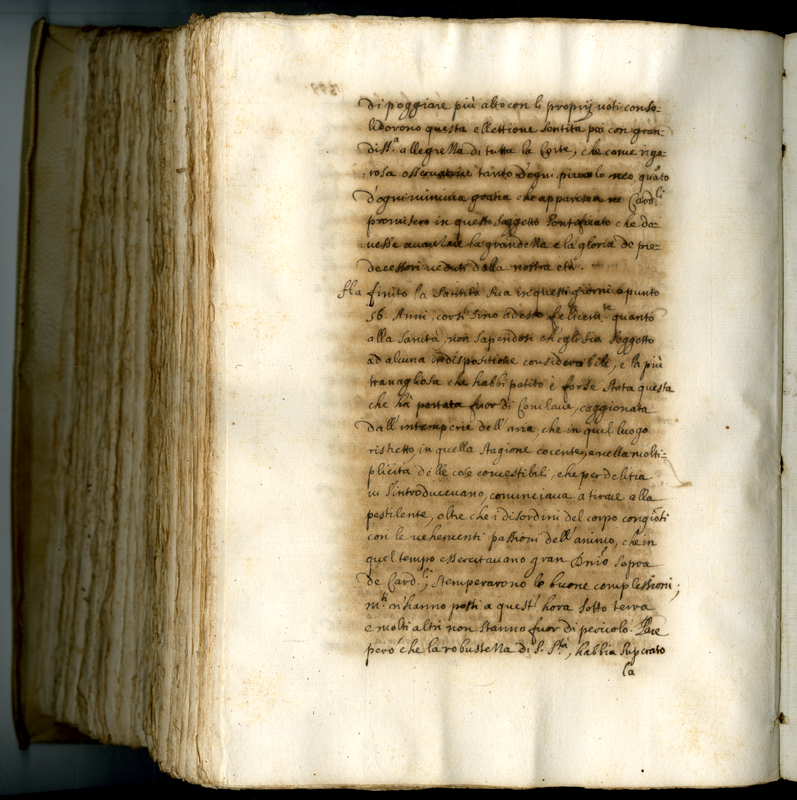 di poggiare più alto con li proprij voti conso=
lidorono questa ellettione sentita poi con gran=
diss.a allegrezza di tutta la Corte, che come rigo=
rosa osservatrice tanto d'ogni picciolo neo, quāto
d'ogni minima gratia che apparisca ne Card.li
promisero in questo soggetto Pontificato che do=
vesse avanzare la grandezza e la gloria de pre=
decessori veduti dalla nostra età.
Ha finito la Santità Sua in questi giorni apunto
56. Anni, corsi sino adesso felicem.te quanto
alla sanità, non sapendosi ch'egli sia soggetto
ad alcuna indispositione considerabile, e la più
travagliosa che habbi patito è forse stata questa
che hà portata fuor di Conclave, caggionata
dall'intemperie dell'aria, che in quel luogo
ristretto, in quella stagione cocente, e nella molti=
plicità delle cose comestibili, che per delitia
vi s'introducevano, cominciava a tirare alla
pestilente, oltre che i disordini del corpo congiōti
con le vehementi passioni dell'animo, che in
quel tempo essercitavano gran Dnīo sopra
de Card.li, stemperarono le buone complessioni;
m.ti n'hanno posti a quest'hora sotto terra
e molti altri non stanno fuor di pericolo. Pare
però che la robustezza di S. S.tà, habbia superato
la